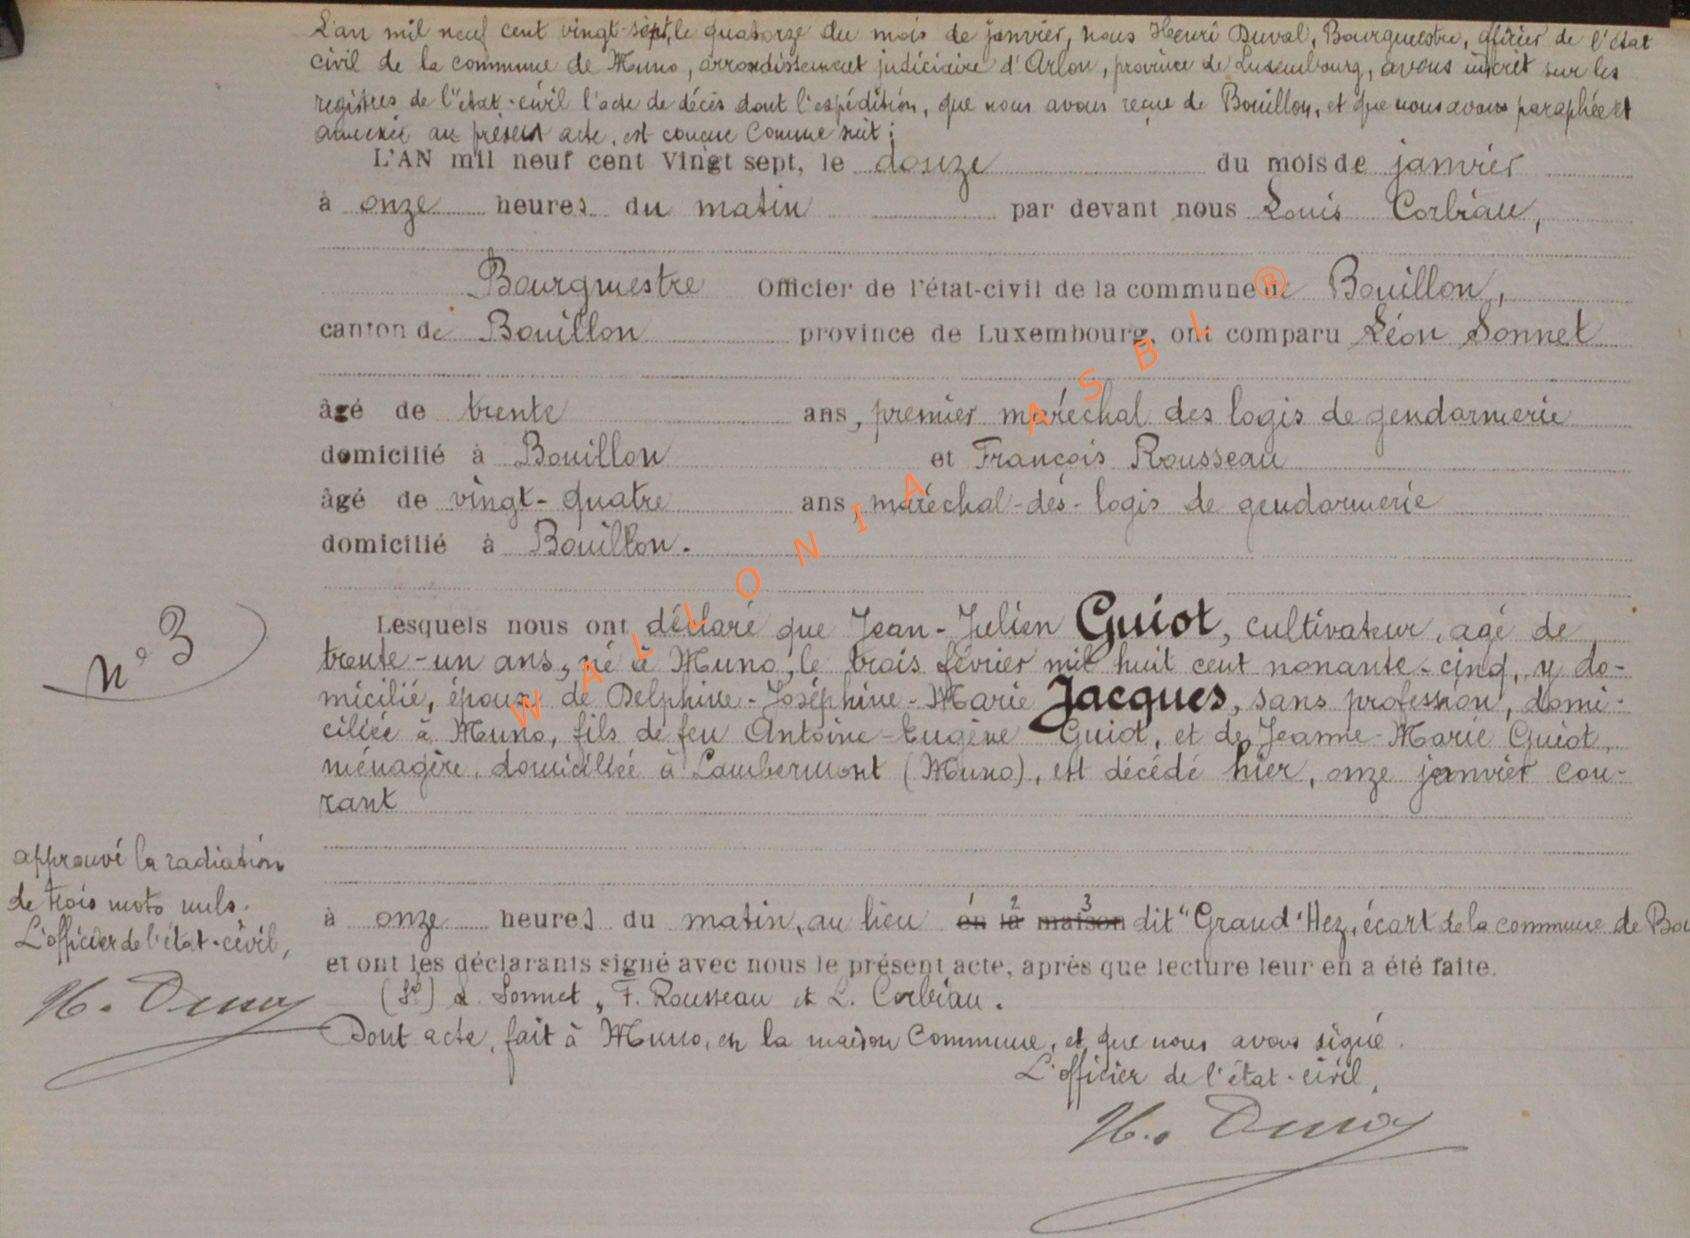 L'an mil neuf cent vingt-sept, le quatorze du mois de janvier, nous Henri Duval, Bourgmestre, officier de l'état
civil de la commune de Muno, arrondissement judiciaire d'Arlon, province de Luxembourg, avons inscrit sur les
registres de l'état-civil l'acte de décès dont l'expédition, que nous avons reçue de Bouillon, et que nous avons paraphée et
annexée au présent acte, est conçue comme suit :
L'AN mil neuf cent Vingt sept, le douze du mois de janvier
à onze heures du matin par devant nous Louis Corbiau,
Bourgmestre Officier de l'état-civil de la commune de Bouillon,
canton de Bouillon province de Luxembourg, ont comparu Léon Sonnet
âgé de trente ans, premier maréchal des logis de gendarmerie
domicilié à Bouillon et François Rousseau
âgé de vingt-quatre ans, maréchal-des-logis de gendarmerie
domicilié à Bouillon.
n° 3
Lesquels nous ont déclaré que Jean-Julien Guiot, cultivateur, agé de
trente-un ans, né à Muno, le trois février mil huit cent nonante-cinq, y do-
micilié, époux de Delphine-Joséphine-Marie Jacques, sans profession, domi-
ciliée à Muno, fils de feu Antoine-Eugène Guiot, et de Jeanne-Marie Guiot,
ménagère, domiciliée à Lambermont (Muno), est décédé hier, onze janvier cou-
rant
approuvé la radiation
de trois mots nuls.
L'officier de l'état-civil,
H. Duval
à onze heures du matin, au lieu en la maison dit "Grand" Hez, écart de la commune de Bou
1 2 3
et ont les déclarants signé avec nous le présent acte, après que lecture leur en a été faite.
(Sé) L. Sonnet, F. Rousseau et L. Corbiau.
Dont acte, fait à Muno, en la maison Commune, et que nous avons signé.
L'officier de l'état-civil,
H. Duval
WALLONIA ASBL ®